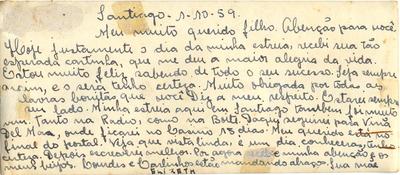 Santiago - 1-10-59.
Meu muito querido filho. Abenção para você
Hoje justamente o dia da minha estreia, recebi sua tão
esperada cartinha, que me deu a maior alegria da vida.
Estou muito feliz, sabendo de todo o seu sucesso. Seja sempre
assim, e o será tenho certeza. Muito obrigada por todas as
lavras bonitas que você Diz a meu respeito. Estarei sempre
seu lado. Minha estreia aqui em Santiago também foi muito
um. Tanto na Radio, como na Boite. Daqui seguirei para Viña
Del Mar, onde ficarei no Casino 18 dias. Meu querido está no
final do postal. Veja que vista linda, e um dia conhecerás, tenho
certeza. Depois escreverei melhor. Por agora a minha abenção e os
meus beijos. Tondes e Carlinhos estão mandando abraço. Sua mãe